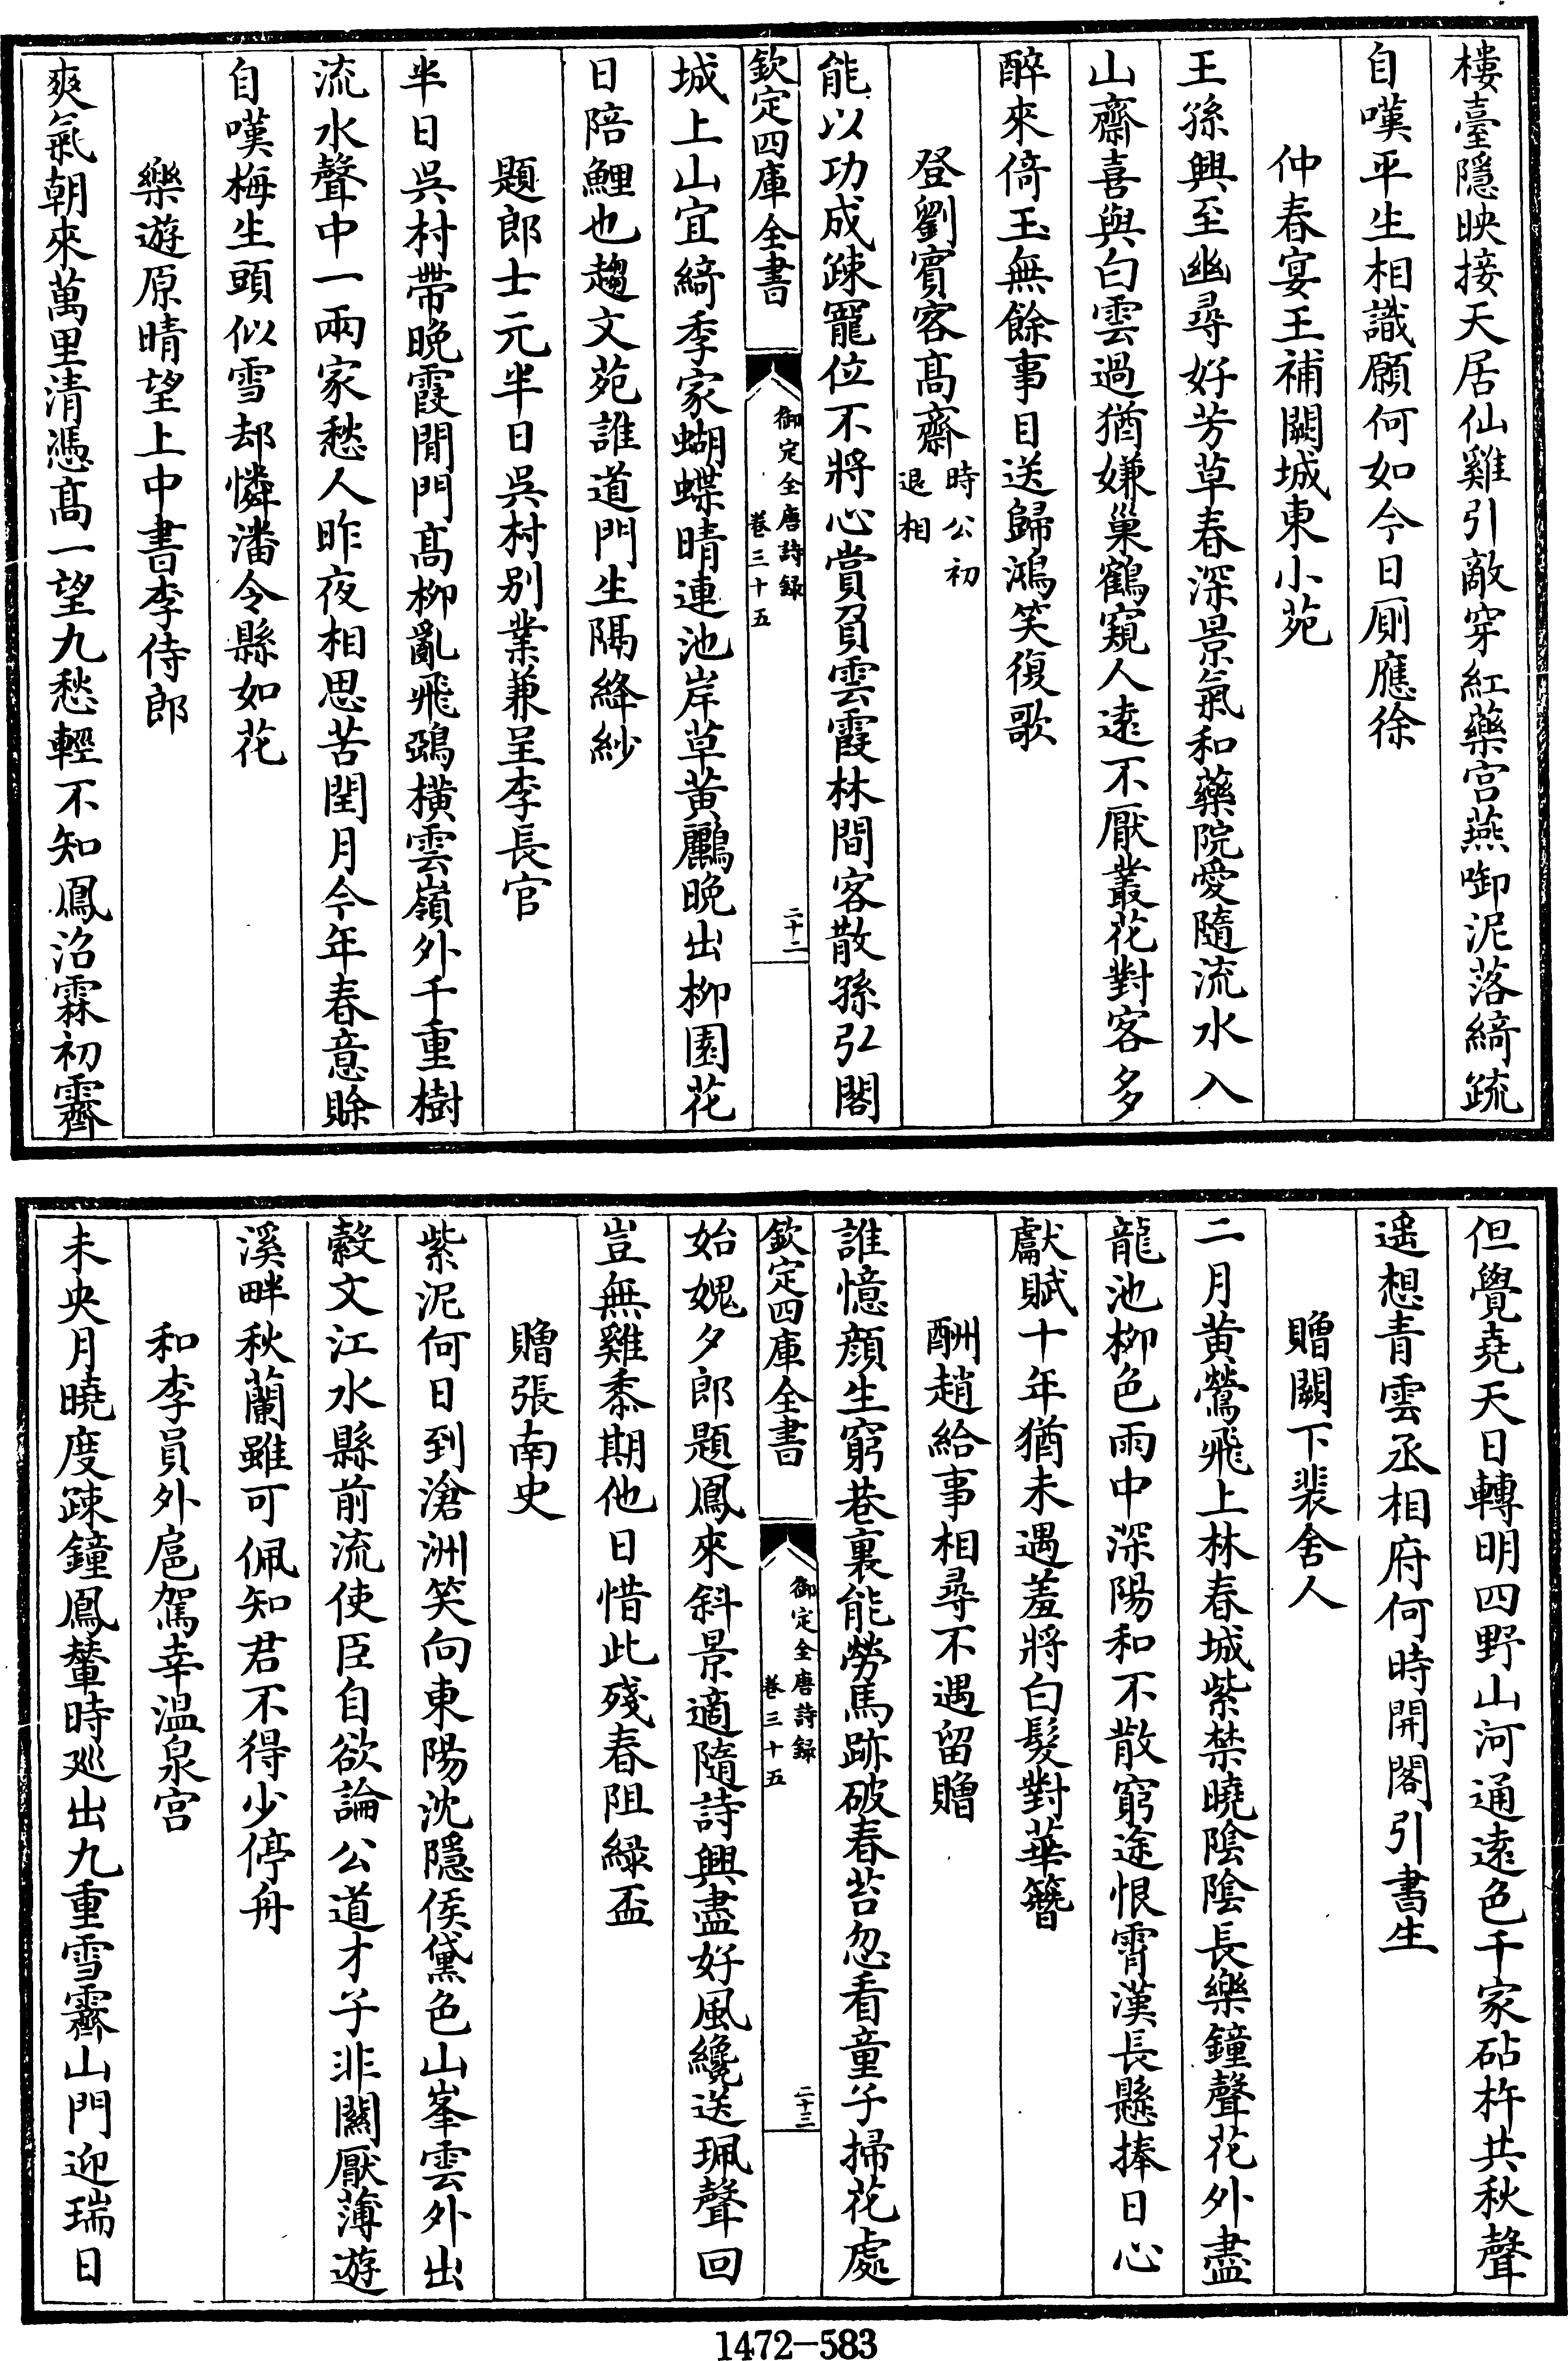 樓臺隱映接天居仙雞引敵穿紅藥宫燕啣泥落綺疏
自嘆平生相識願何如今日厠應徐
仲春宴王補闕城東小苑
王孫興至幽尋好芳草春深景氣和藥院愛隨流水入
山齋喜與白雲過猶嫌巢鶴窺人遠不厭叢花對客多
醉來倚玉無餘事目送歸鴻笑復歌
登劉賓客髙齋時公初退相
能以功成疎寵位不將心賞負雲霞林間客散孫弘閣
欽定四庫全書
御定全唐詩録
卷三十五
二十二
城上山宜綺季家蝴蝶晴連池岸草黄鸝晚出柳園花
日陪鯉也趨文苑誰道門生隔絳紗
題郎士元半日吳村别業兼呈李長官
半日吳村帶晚霞閒門髙柳亂飛鵶橫雲嶺外千重樹
流水聲中一兩家愁人昨夜相思苦閏月今年春意賒
自嘆梅生頭似雪却憐潘令縣如花
樂遊原晴望上中書李侍郎
爽氣朝來萬里清憑髙一望九愁輕不知鳳沼霖初霽
但覺堯天日轉明四野山河通遠色千家砧杵共秋聲
遥想青雲丞相府何時開閣引書生
贈闕下裴舍人
二月黄鶯飛上林春城紫禁曉陰陰長樂鐘聲花外盡
龍池柳色雨中深陽和不散窮途恨霄漢長懸捧日心
獻賦十年猶未遇羞將白髮對華簪
酬趙給事相尋不遇留贈
誰憶顔生窮巷裏能勞馬跡破春苔忽看童子掃花處
欽定四庫全書
御定全唐詩録
卷三十五
二十三
始媿夕郎題鳳來斜景適隨詩興盡好風纔送珮聲回
豈無雞黍期他日惜此殘春阻緑盃
贈張南史
紫泥何日到滄洲笑向東陽沈隱侯黛色山峯雲外出
縠文江水縣前流使臣自欲論公道才子非關厭薄遊
溪畔秋蘭雖可佩知君不得少停舟
和李員外扈駕幸温泉宫
未央月曉度疎鐘鳳輦時廵出九重雪霽山門迎瑞日
1472-583